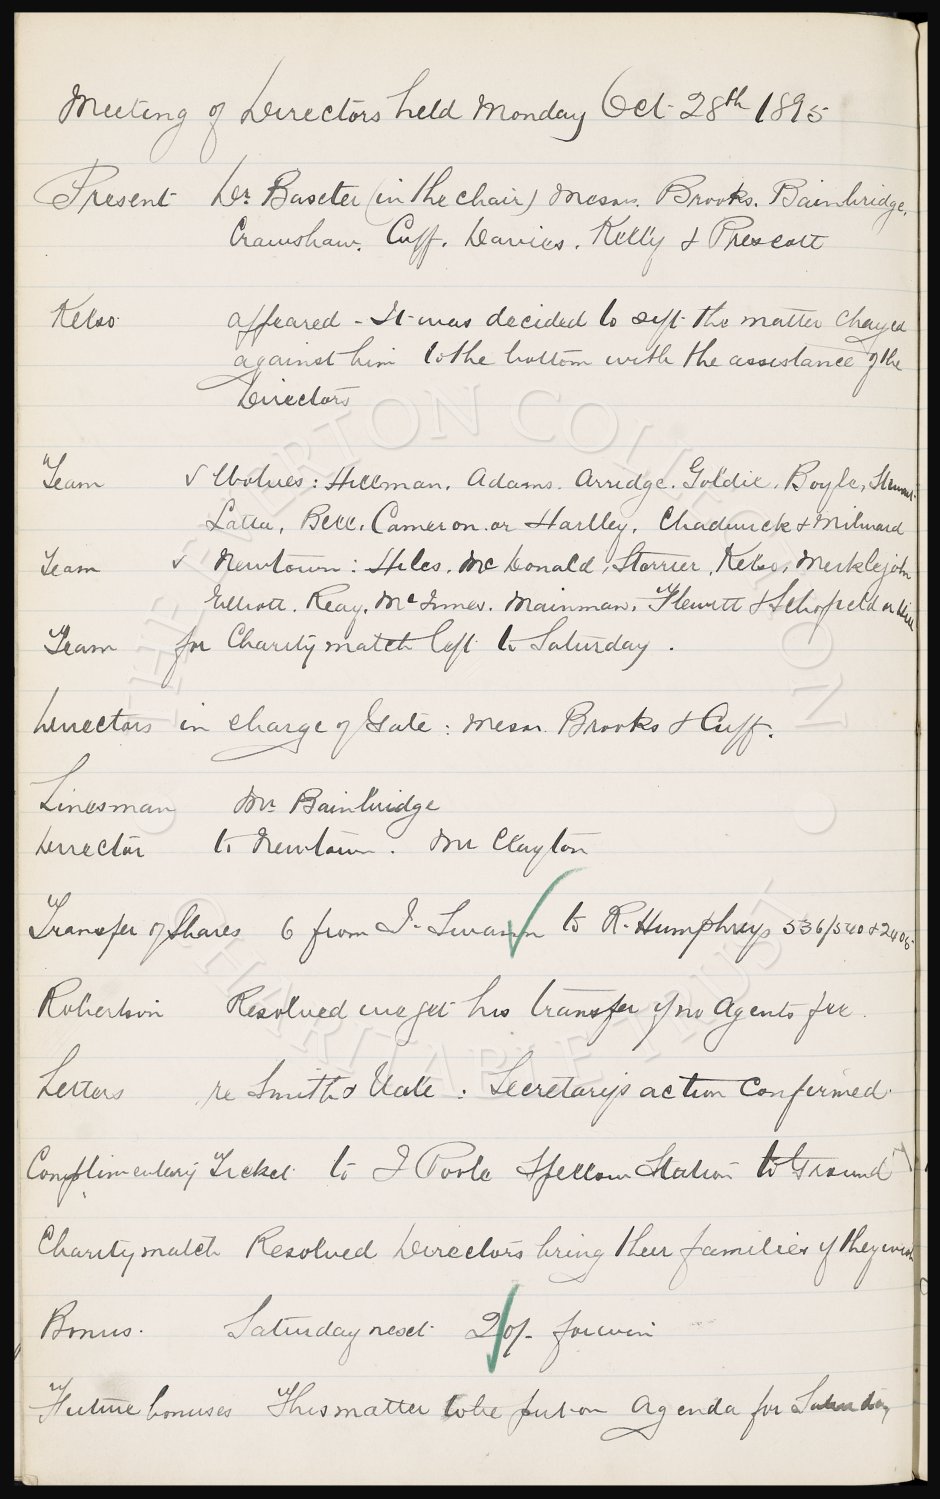 Meeting of Directors held Monday Oct 28th 1895
Present Dr. Baxter (in the chair) Messrs. Brooks. Bainbridge.
Crawshaw. Cuff. Davies. Kelly & Prescott
Kelso appeared - It was decided to sift the matter charged
against him to the bottom with the assistance of the
Directors
Team v Wolves: Hillman. Adams. Arridge. Goldie. Boyle, Stewart.
Latta. Bell. Cameron or Hartley. Chadwick & Milward
Team v Newtown: Hiles. McDonald, Storrier, Kelso. Meiklejohn
Elliott. Reay. McInnes. Mainman. Flewitt & Schofield or Hill
Team for Charity match left to Saturday.
Directors in charge of Gate: Messrs Brooks & Cuff.
Linesman Mr. Bainbridge
Director to Newtown. Mr Clayton
Transfer of Shares 6 from J. Swann to R. Humphreys 536/540 & 2406
Robertson Resolved we get his transfer if no Agents fee.
Letters re Smith & Vale: Secretary's action confirmed.
Complimentary Ticket to J Poole Spellow Station to Ground
Charity match Resolved Directors bring their families if they wish
Bonus. Saturday next 20/- for win
Future bonuses This matter to be put on Agenda for Saturday
THE EVERTON COLLECTION
CHARITABLE TRUST